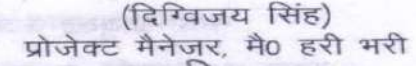 (दिग्विजय सिंह)
प्रोजेक्ट मैनेजर, मै0 हरी भरी